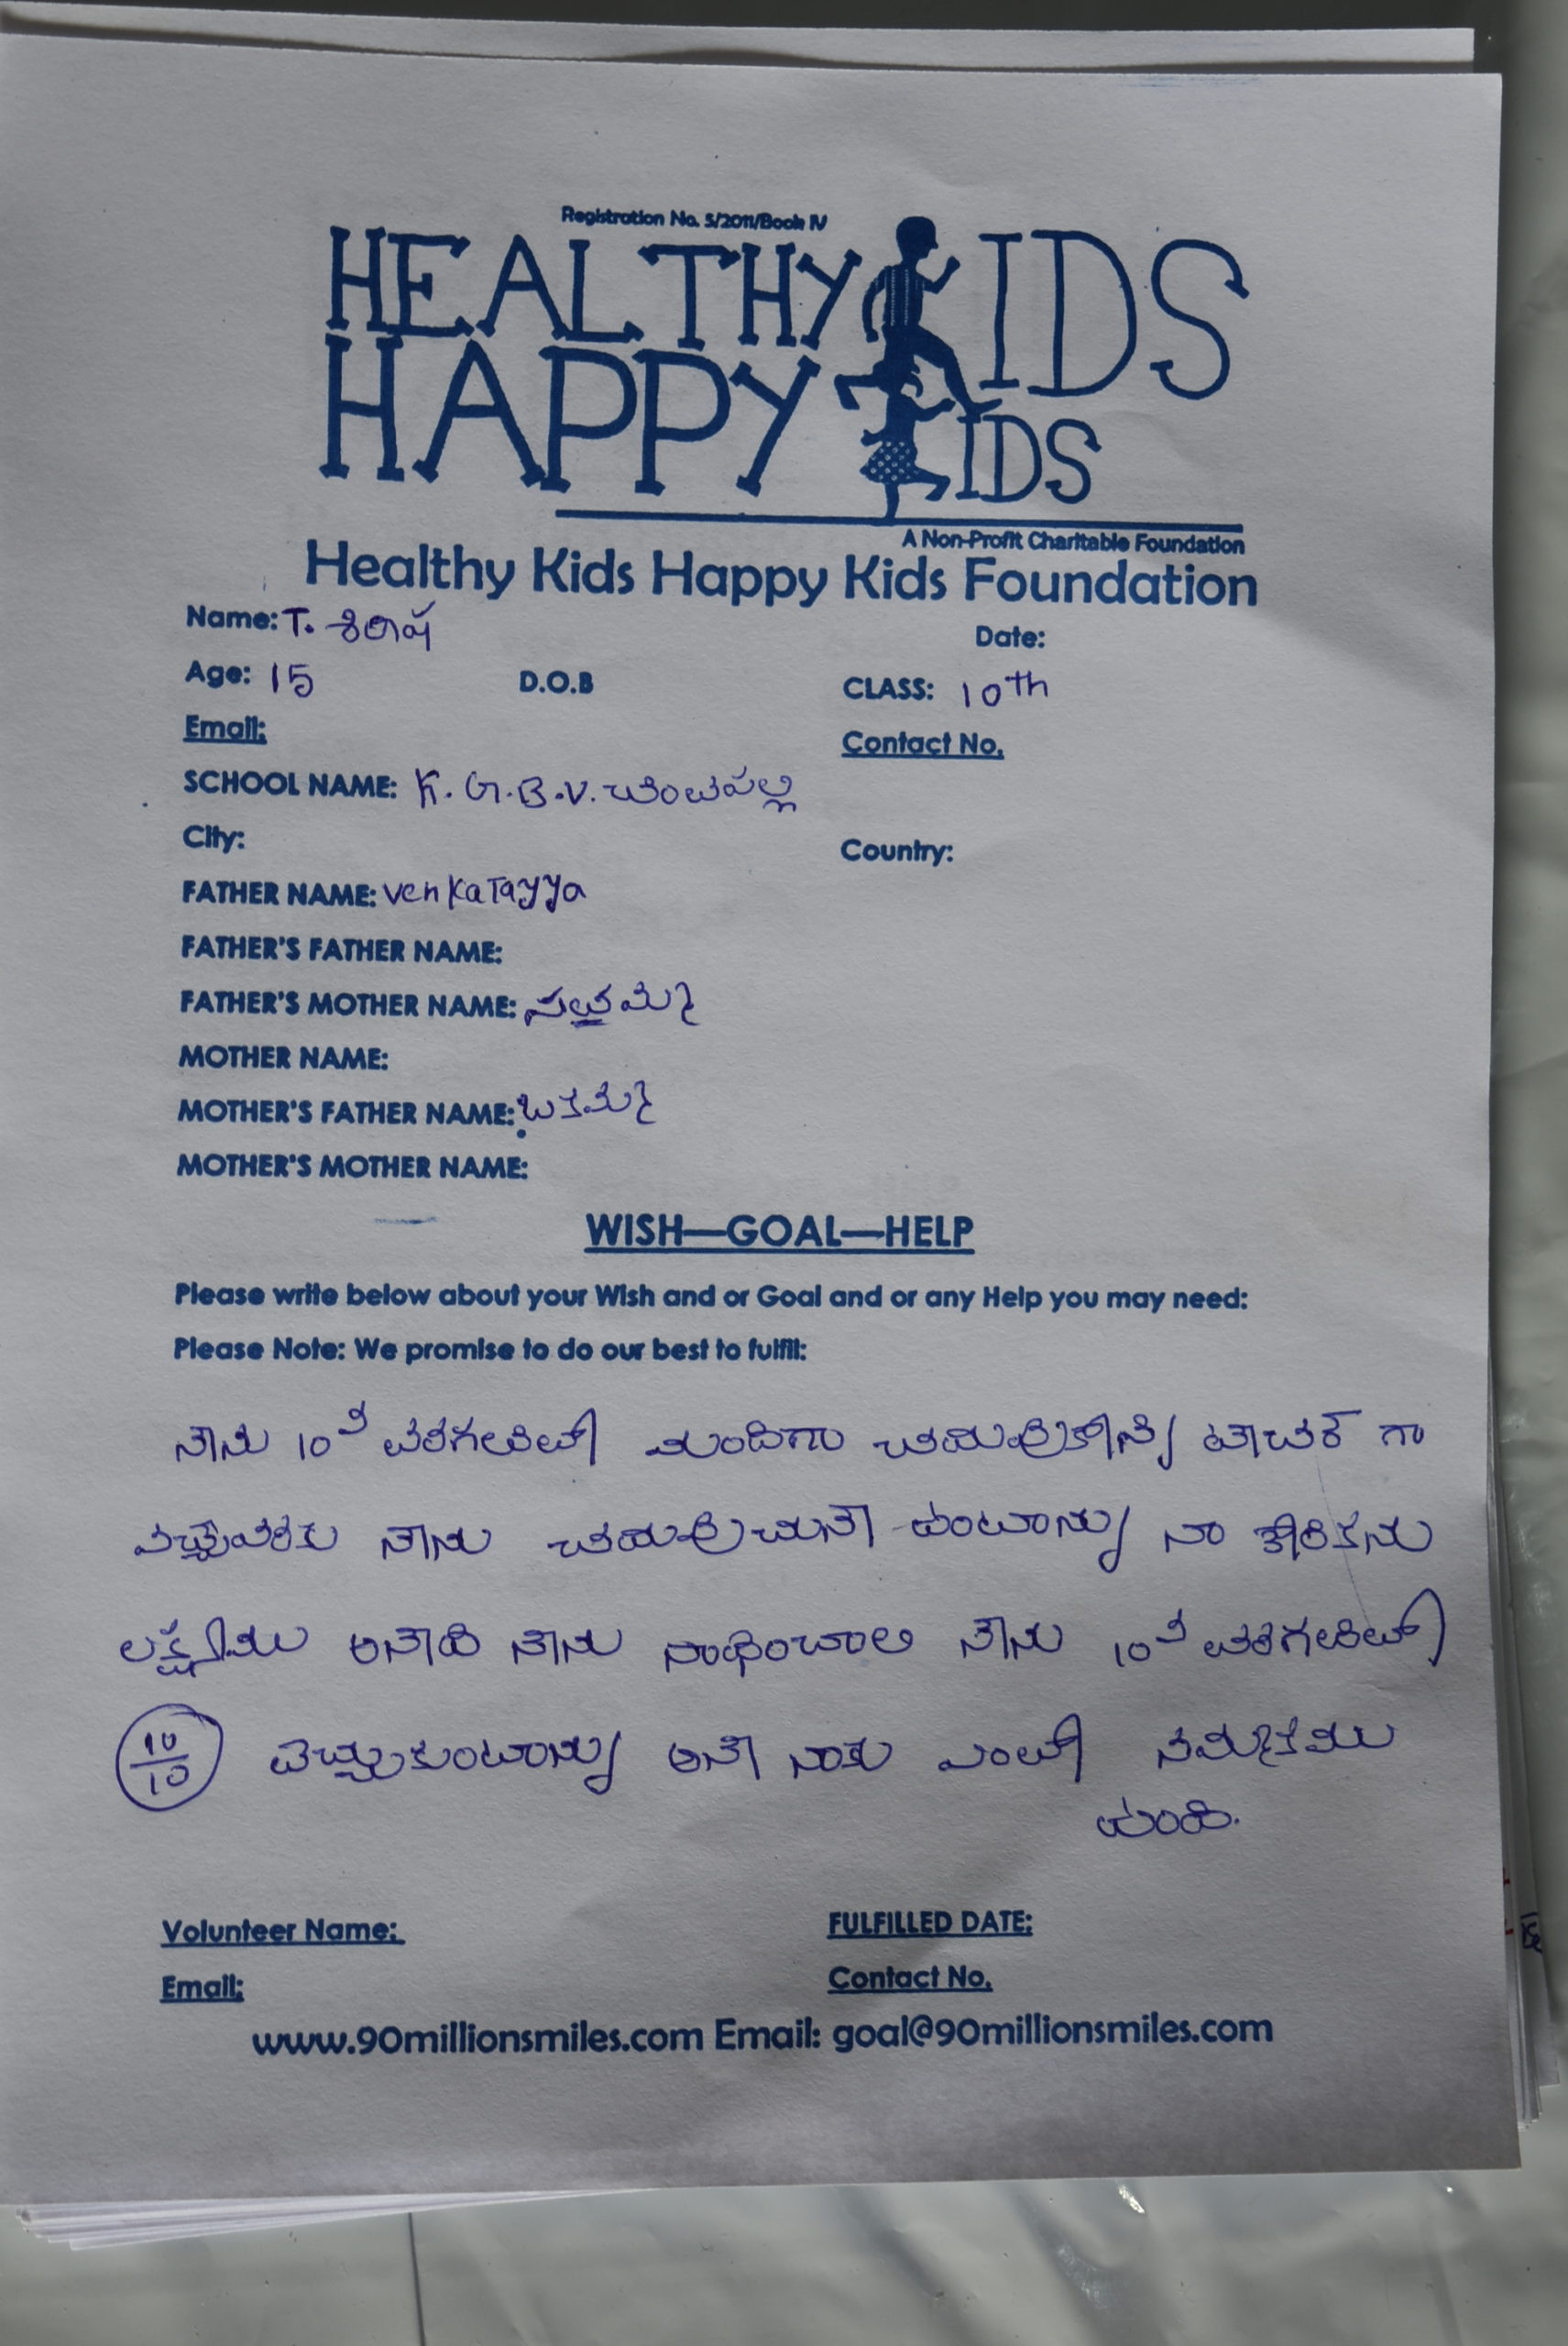 Registration No. 5/2011/Book IV
HEALTHY KIDS
HAPPY KIDS
A Non-Profit Charitable Foundation
Healthy Kids Happy Kids Foundation
Name: T. శిరిష
Date:
Age: 15 D.O.B CLASS: 10th
Email:
Contact No.
SCHOOL NAME: K.G.B.V.
City:
Country:
FATHER NAME: Venkatayya
FATHER'S FATHER NAME:
FATHER'S MOTHER NAME:
MOTHER NAME:
MOTHER'S FATHER NAME:
MOTHER'S MOTHER NAME:
WISH—GOAL—HELP
Please write below about your Wish and or Goal and or any Help you may need:
Please Note: We promise to do our best to fulfil:
నాను 10వ తరగతిలో ముందిగా టాచర్ గా
నాను ఉంటాను నా కోరికను
లక్ష్యము అనాది నాను సాధించాలి నాను 10వ తరగతిలో
10/10 తెచ్చుకుంటాను అని నాకు ఎంతో నమ్మకము
ఉంది.
Volunteer Name:
FULFILLED DATE:
Email:
Contact No.
www.90millionsmiles.com Email: goal@90millionsmiles.com